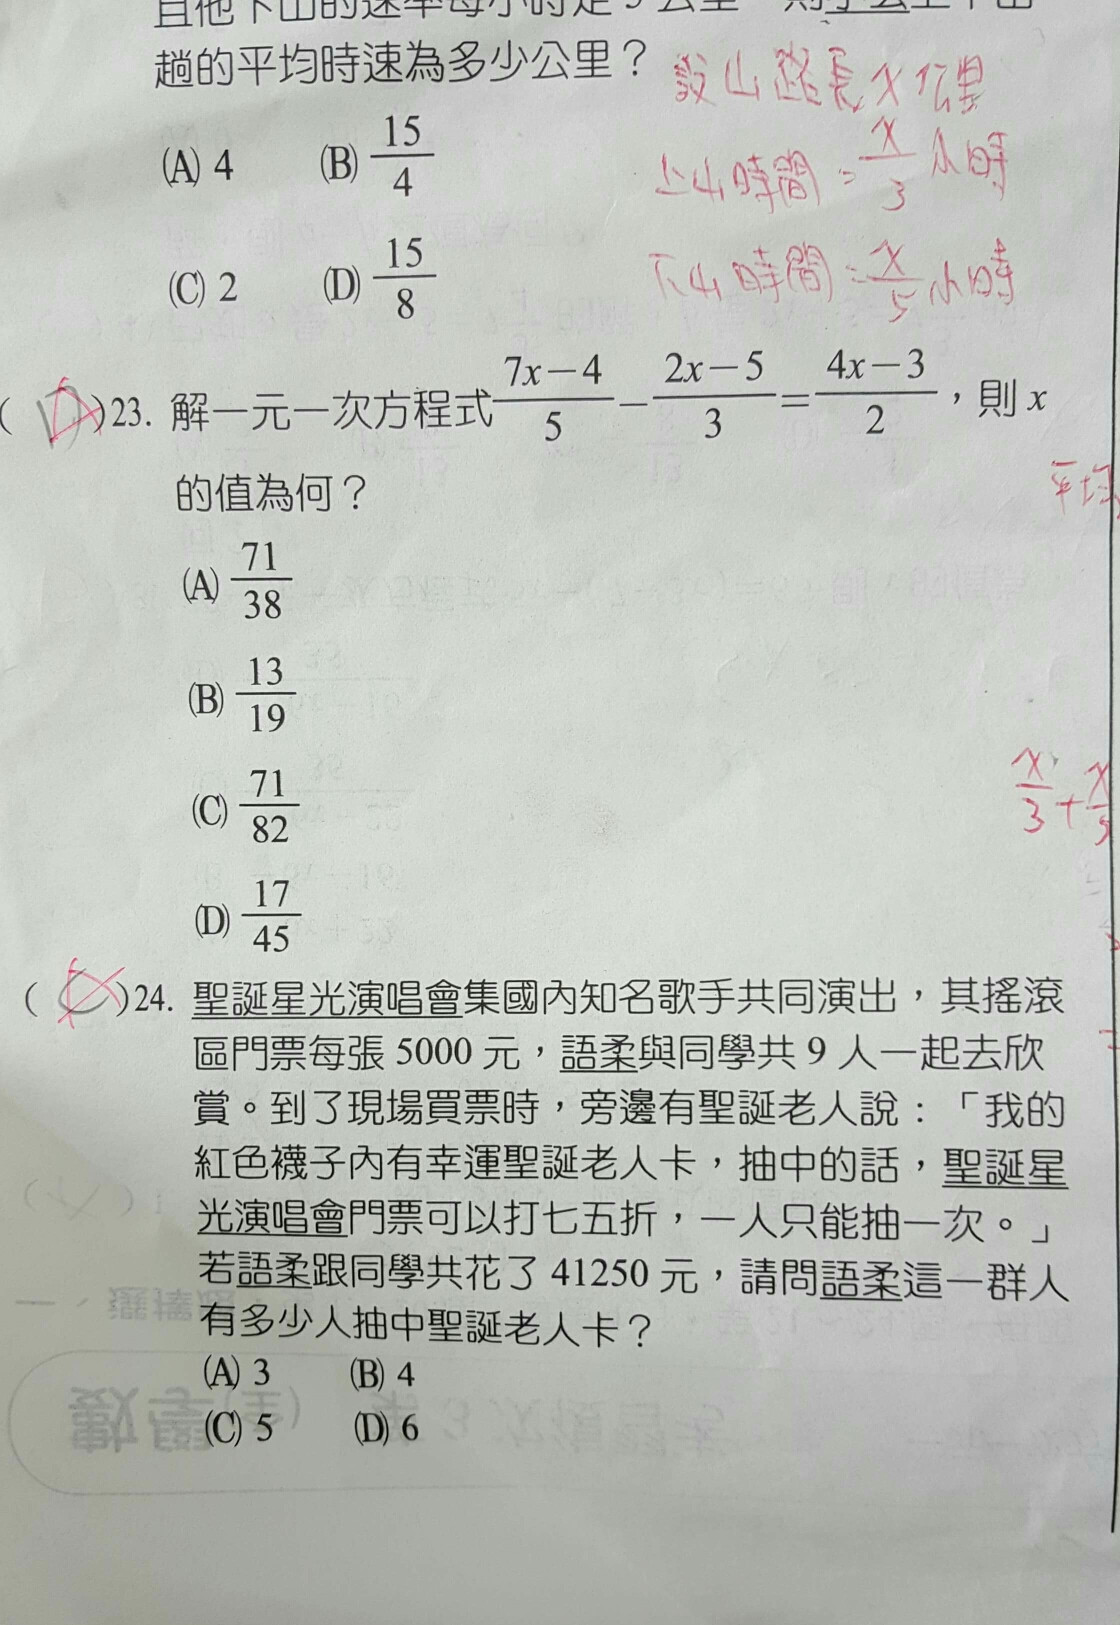 且他下山的速率每小時是5公里
趟的平均時速為多少公里？
設山路長x公里
(A) 4 (B) 15/4
上山時間=x/3小時
(C) 2 (D) 15/8
下山時間=x/5小時
( D )23. 解一元一次方程式 (7x－4)/5－(2x－5)/3＝(4x－3)/2，則 x
的值為何？
平均
(A) 71/38
(B) 13/19
(C) 71/82
x/3+x/5
(D) 17/45
( C )24. 聖誕星光演唱會集國內知名歌手共同演出，其搖滾
區門票每張 5000 元，語柔與同學共 9 人一起去欣
賞。到了現場買票時，旁邊有聖誕老人說：「我的
紅色襪子內有幸運聖誕老人卡，抽中的話，聖誕星
光演唱會門票可以打七五折，一人只能抽一次。」
若語柔跟同學共花了 41250 元，請問語柔這一群人
有多少人抽中聖誕老人卡？
(A) 3 (B) 4
(C) 5 (D) 6